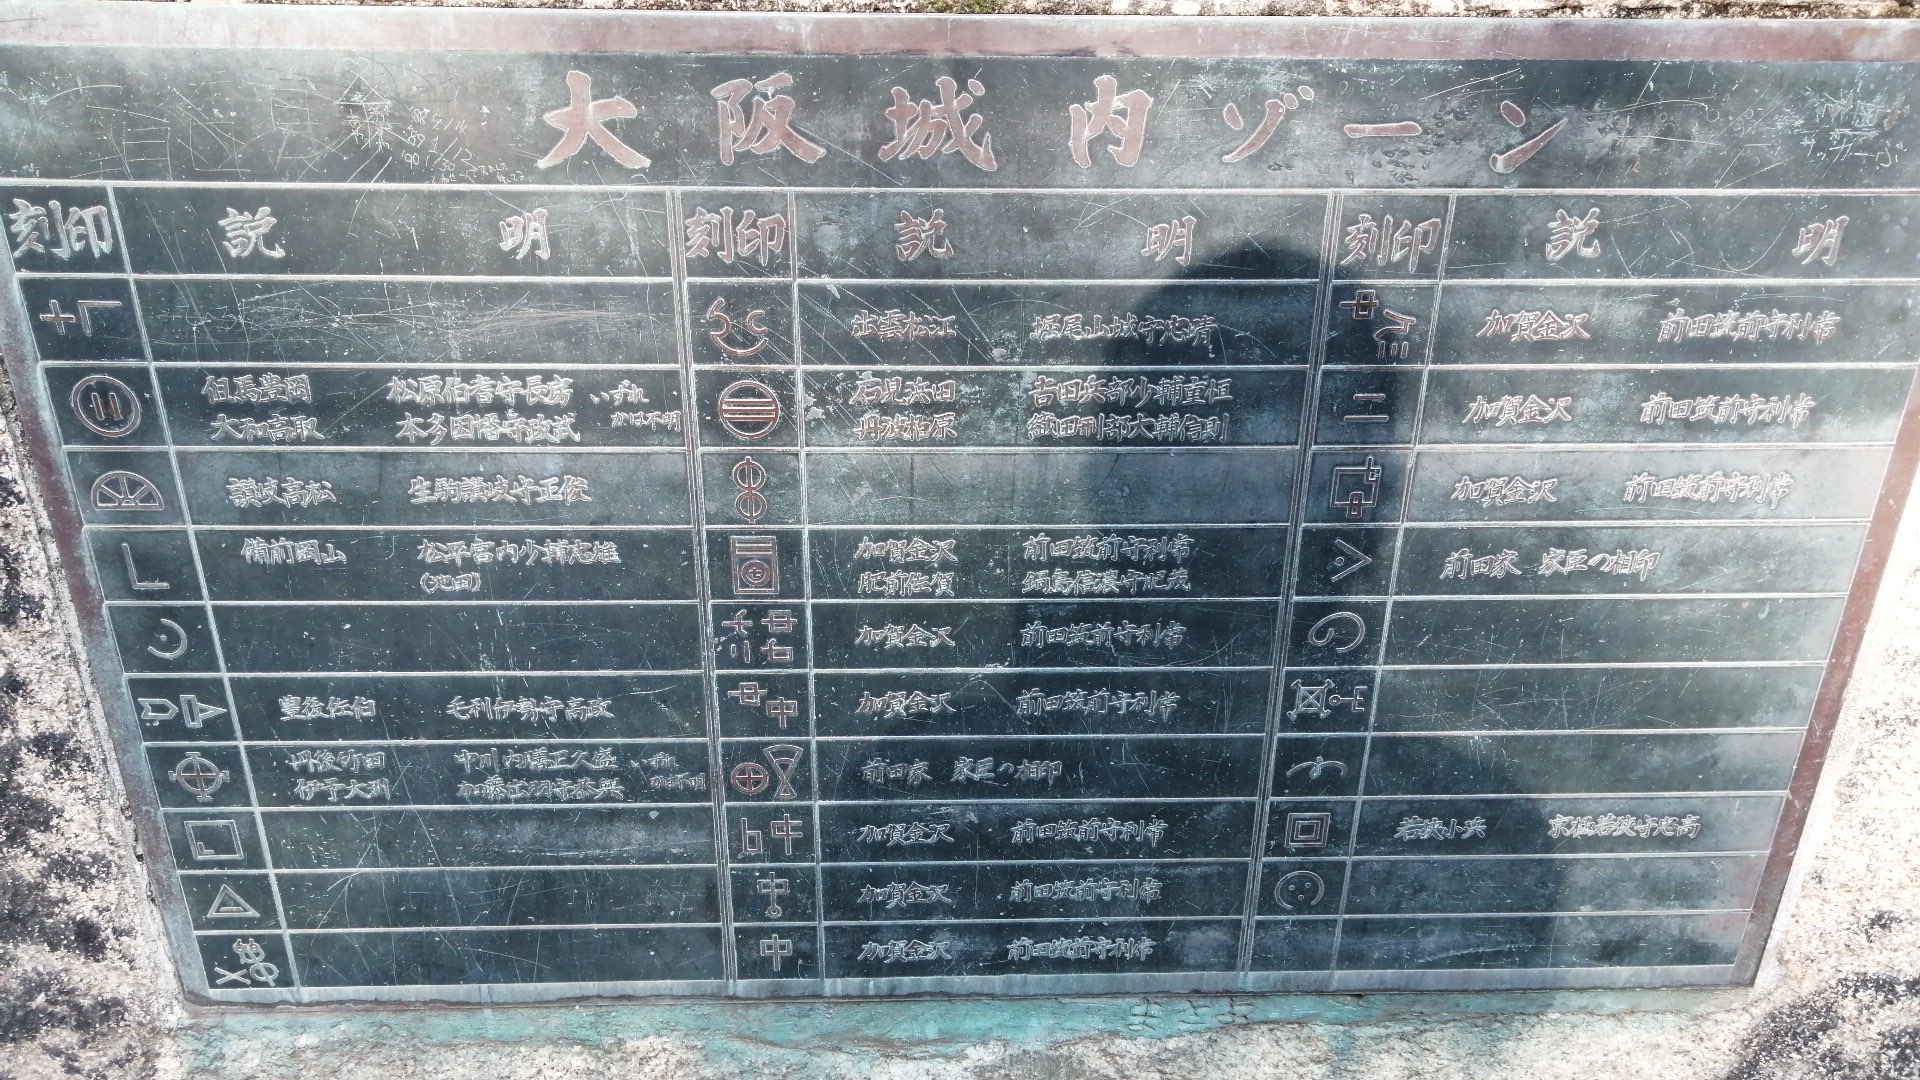 大阪城内ゾーン
刻印 説明
但馬豊岡 松原伯耆守長房 いずれ
大和高取 本多因幡守政武 かは不明
讃岐高松 生駒讃岐守正俊
備前岡山 松平宮内少輔忠雄
(池田)
豊後佐伯 毛利伊勢守高政
豊後竹田 中川内膳正久盛 いずれ
伊予大洲 加藤出羽守泰興 かは不明
刻印 説明
出雲松江 堀尾山城守忠晴
石見浜田 古田兵部少輔重恒
丹波柏原 織田刑部大輔信則
加賀金沢 前田筑前守利常
肥前佐賀 鍋島信濃守
加賀金沢 前田筑前守利常
加賀金沢 前田筑前守利常
前田家 家臣の相印
加賀金沢 前田筑前守利常
加賀金沢 前田筑前守利常
中 加賀金沢 前田筑前守利常
刻印 説明
加賀金沢 前田筑前守利常
加賀金沢 前田筑前守利常
加賀金沢 前田筑前守利常
前田家 家臣の相印
若狭小浜 京極若狭守忠高